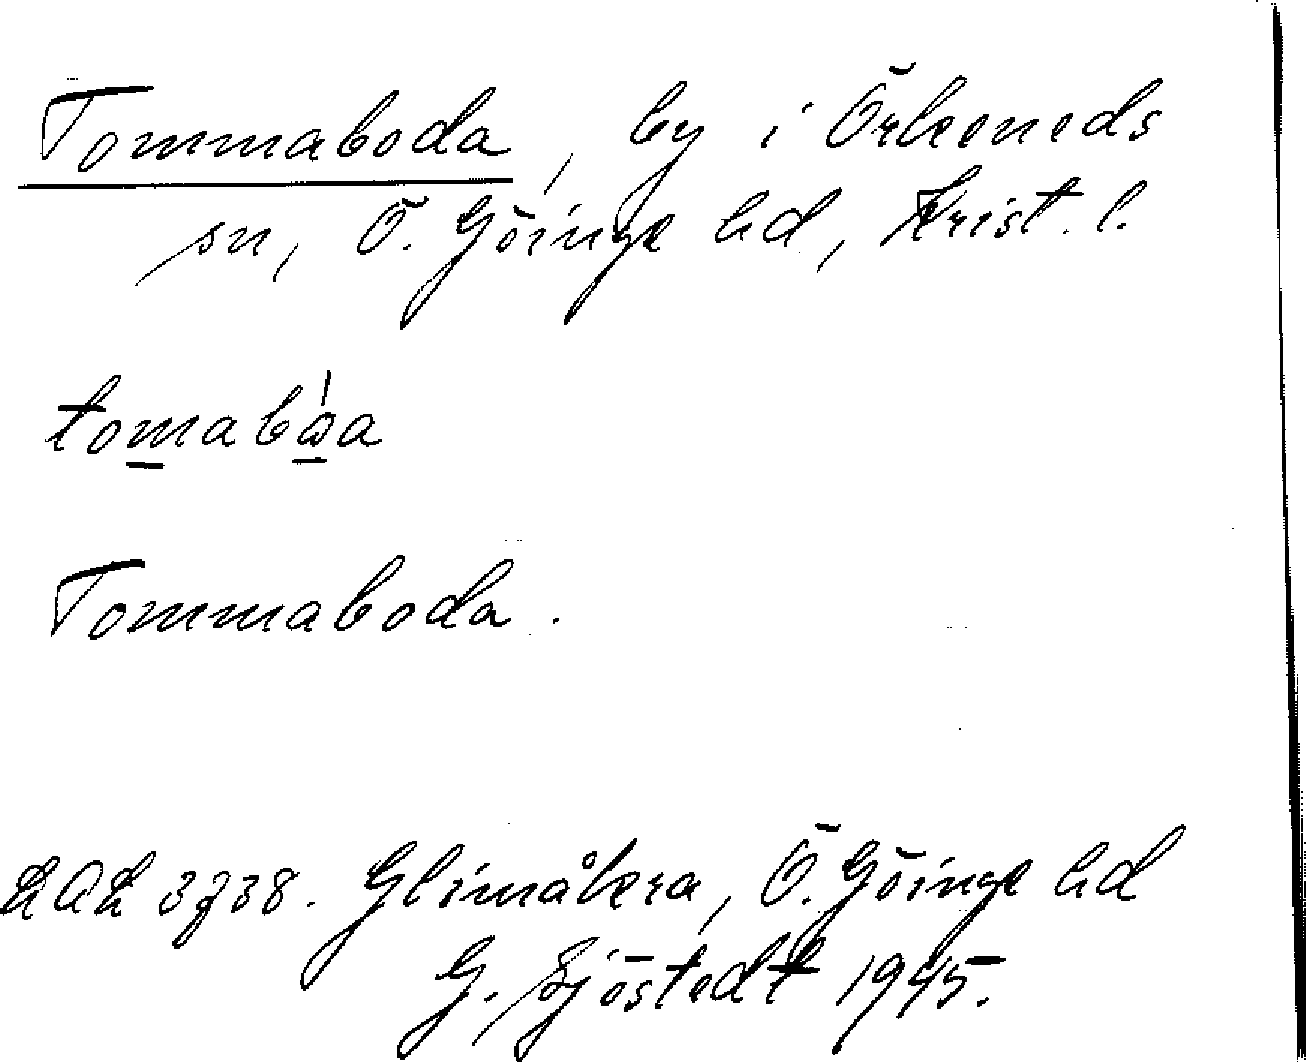 Tommaboda, by i Örkeneds
sn, Ö. Göinge hd, Krist. l.
Tommaboda.
3738. Glimåkra, Ö. Göinge hd
G. Sjöstedt 1945.